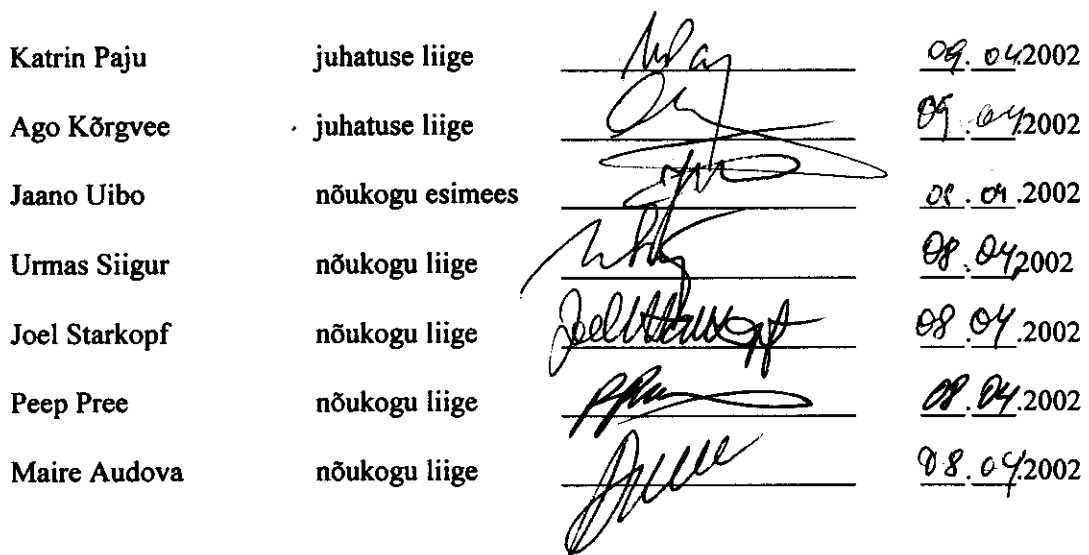 Katrin Paju juhatuse liige 09.04.2002
Ago Kõrgvee juhatuse liige 09.04.2002
Jaano Uibo nõukogu esimees 08.04.2002
Urmas Siigur nõukogu liige 08.04.2002
Joel Starkopf nõukogu liige Joel Starkopf 08.04.2002
Peep Pree nõukogu liige 08.04.2002
Maire Audova nõukogu liige 08.04.2002